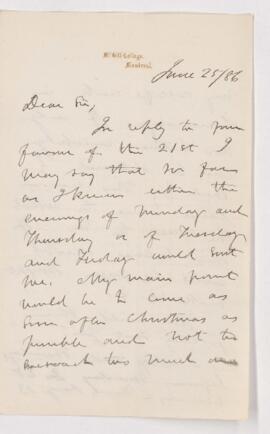 McGill College,
Montreal.
June 25/86
Dear Sir,
In reply to your
favour of the 21st I
may say that so far
as I know either the
evenings of Monday and
Thursday or of Tuesday
and Friday would suit
me. My main point
would be to come as
soon after Christmas as
possible and not to
encroach too much on